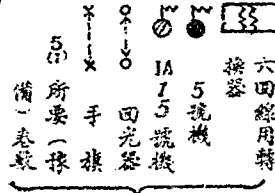 六回線用轉
換器
5號機
IA15號機
回光器
手旗
5(1)所要一稼
備一卷数